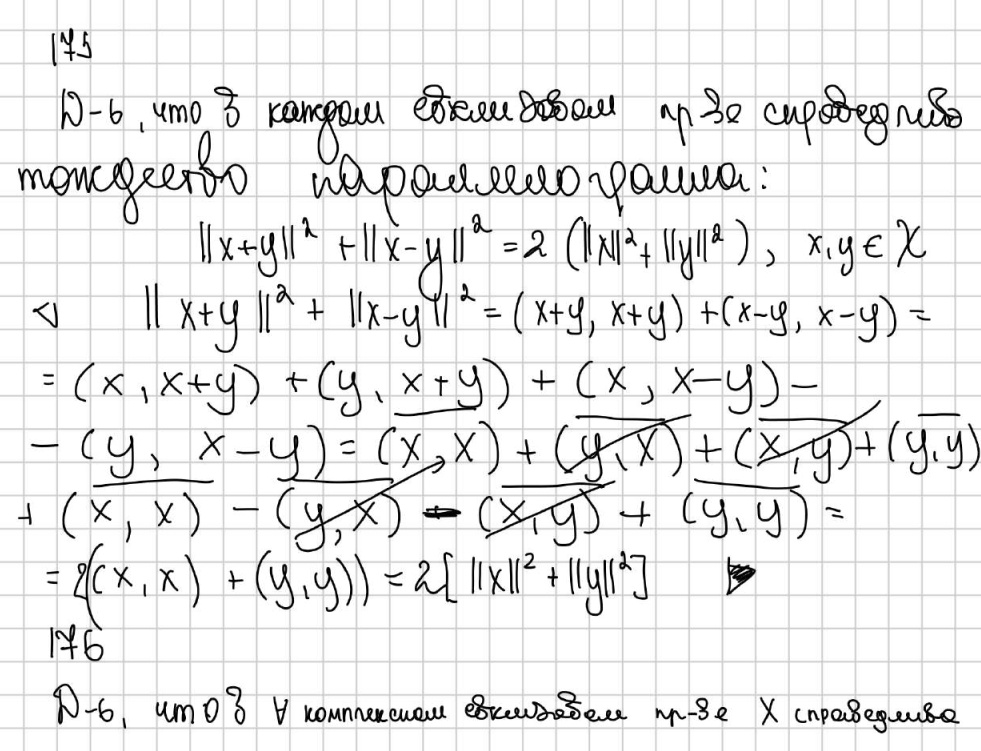 175
Д-ь, что в каждом евклидовом пр-ве справедливо
тождество параллелограмма:
||x+y||² + ||x-y||² = 2 (||x||² + ||y||²), x,y ∈ X
◁ ||x+y||² + ||x-y||² = (x+y, x+y) + (x-y, x-y) =
= (x, x+y) + (y, x+y) + (x, x-y) -
- (y, x-y) = (x, x) + (y, x) + (x, y) + (y, y)
+ (x, x) - (y, x) - (x, y) + (y, y) =
= 2((x, x) + (y, y)) = 2[ ||x||² + ||y||² ] ▶
176
Д-ь, что в ∀ комплексном евклидовом пр-ве X справедливо